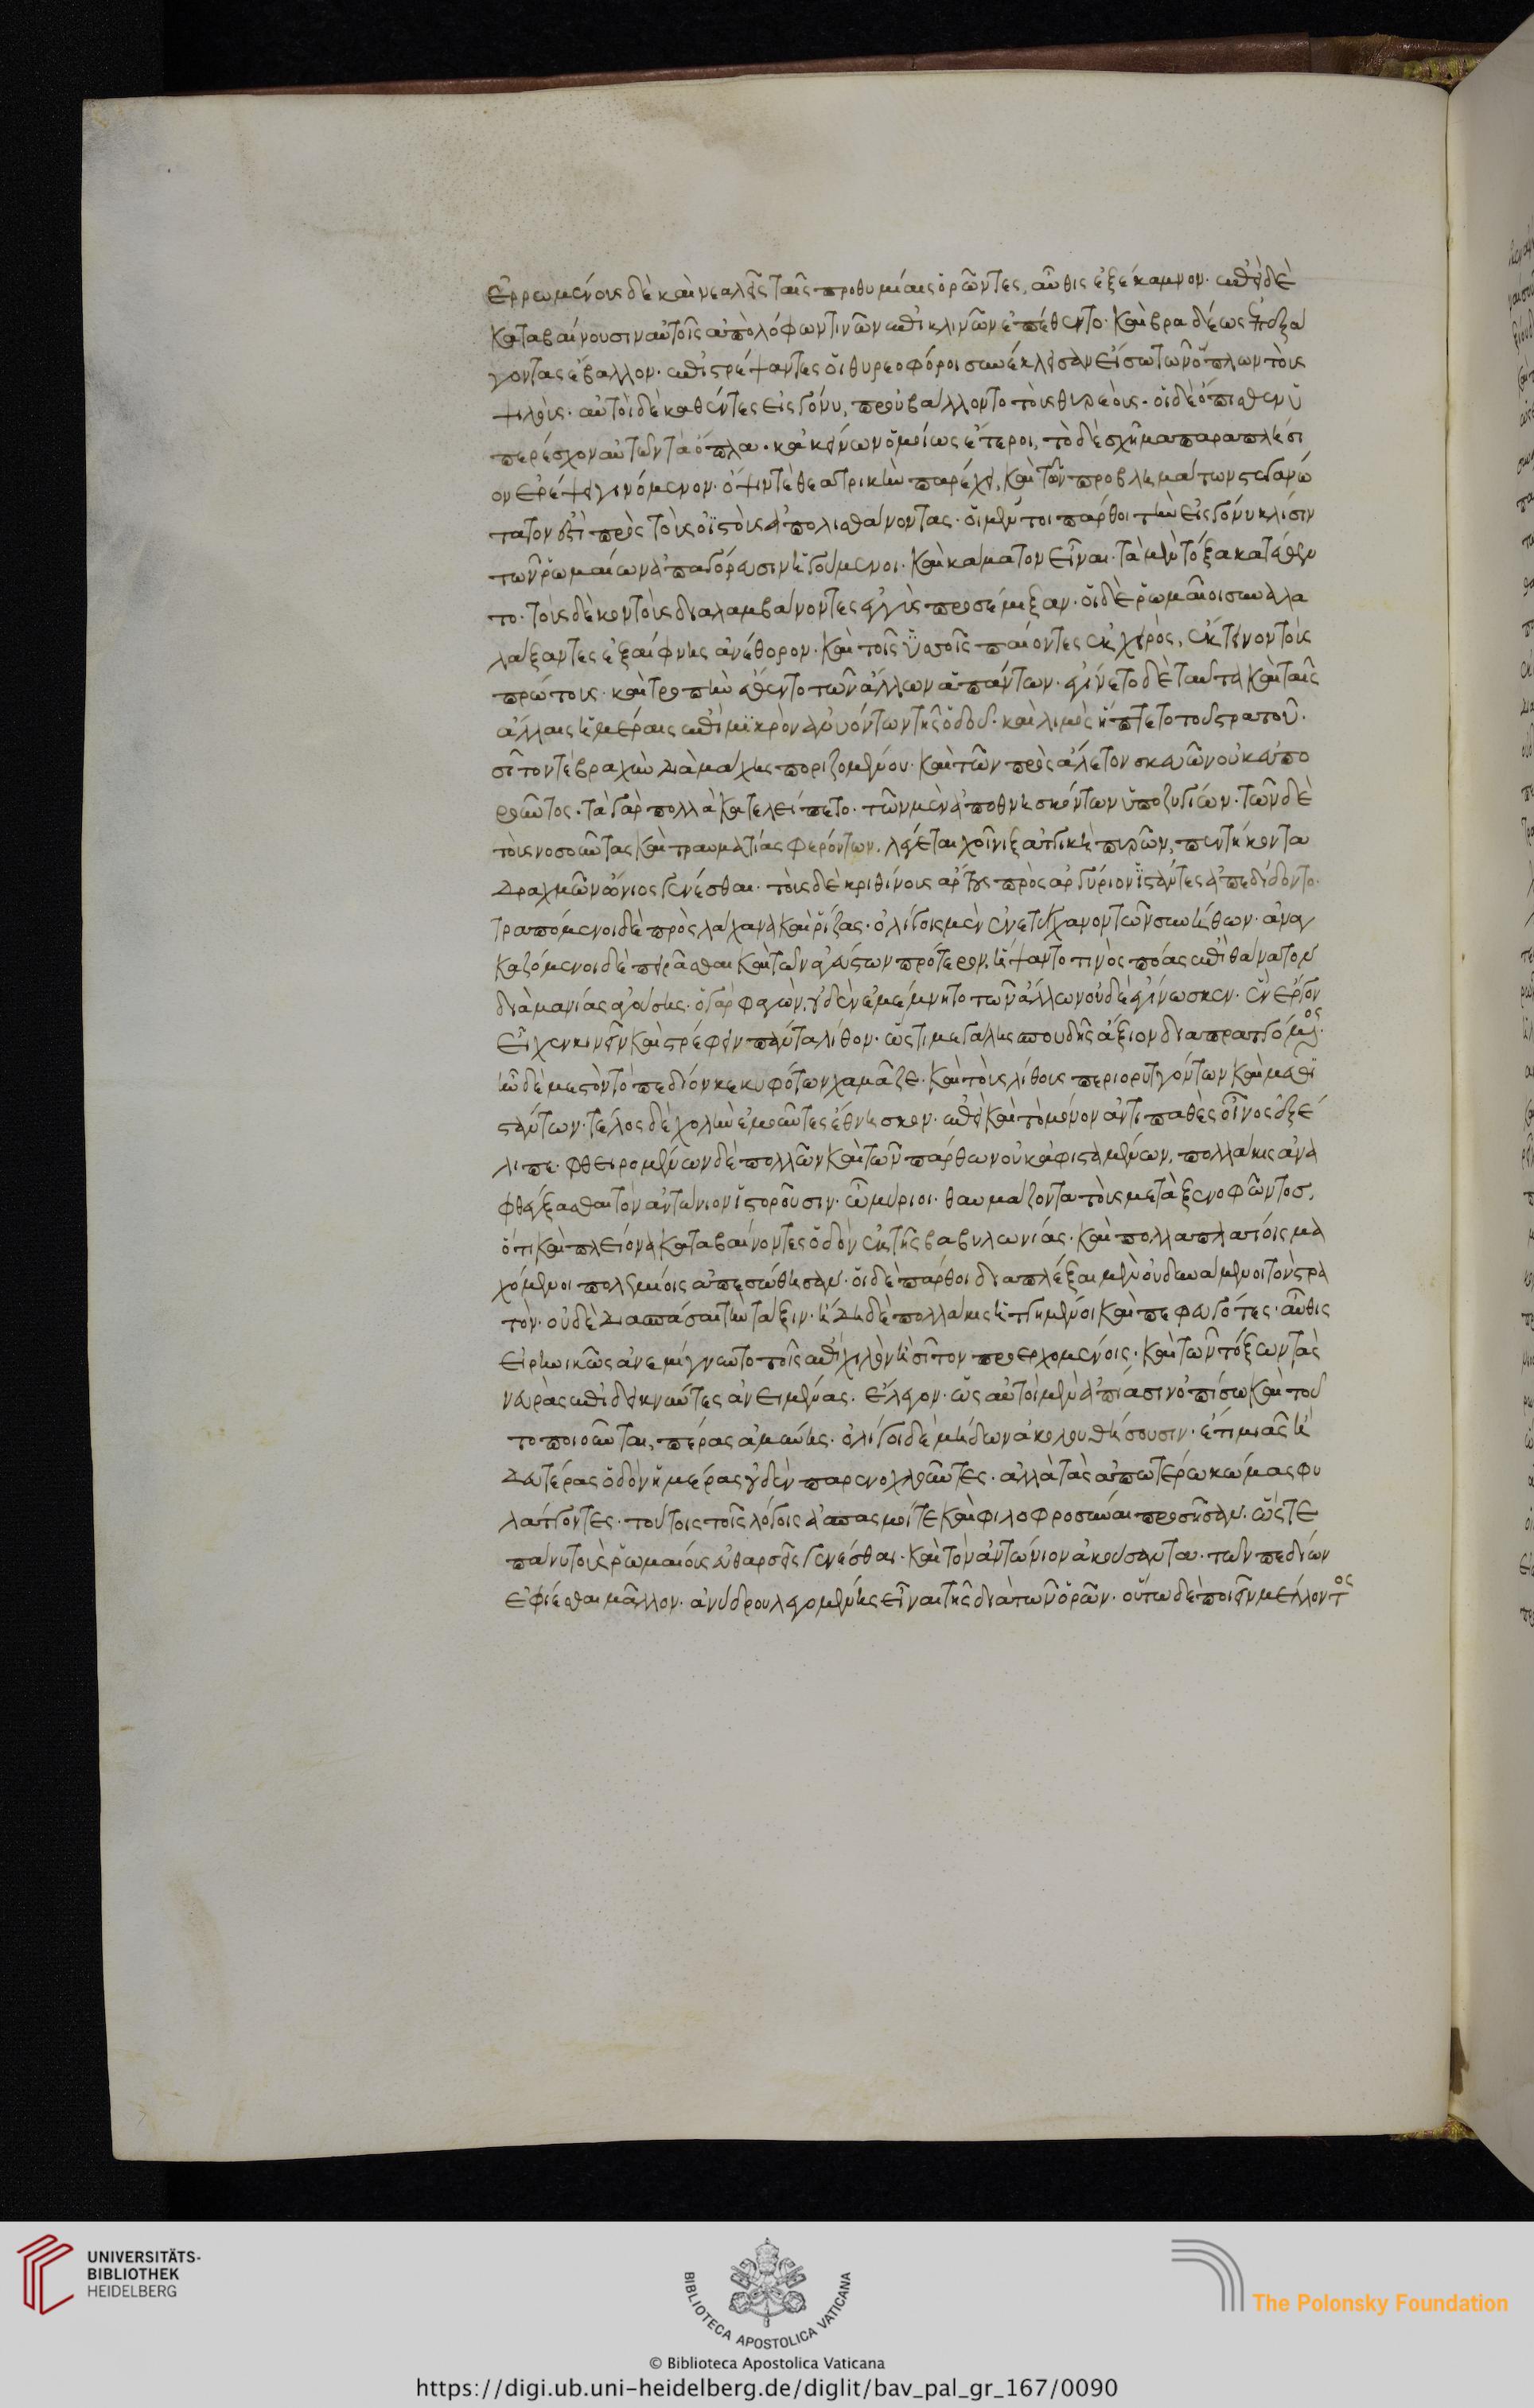 ἐρρωμένοις δὲ καὶ νεαλεῖς ταῖς προθυμίαις ὁρῶντες, αὖθις ἐξέκαμνον. ἐπεὶ δὲ
καταβαίνουσιν αὐτοῖς ἀπὸ λόφων τινῶν ἐπικλινῶν ἐπέθεντο. καὶ βραδέως ὑπεξά
γοντας ἔβαλλον. ἐπιστρέψαντες οἱ θυρεοφόροι συνέκλεισαν εἴσω τῶν ὅπλων τοὺς
ψιλούς. αὐτοὶ δὲ καθέντες εἰς γόνυ, προὐβάλλοντο τοὺς θυρεούς. οἱ δὲ ὄπισθεν ὑ
περέσχον αὐτῶν τὰ ὅπλα. κἀκείνων ὁμοίως ἕτεροι, τὸ δὲ σχῆμα παραπλήσι
ον ἐρέψει γινόμενον. ὄψιν τε θεατρικὴν παρέχει, καὶ τῶν προβλημάτων στεγανώ
τατόν ἐστι πρὸς τοὺς ὀϊστοὺς ἀπολισθαίνοντας. οἱ μέντοι πάρθοι τὴν εἰς γόνυ κλίσιν
τῶν ῥωμαίων ἀπαγόρευσιν ἡγούμενοι. καὶ κάματον εἶναι. τὰ μὲν τόξα κατέθεν
το. τοὺς δὲ κοντοὺς διαλαμβάνοντες ἐγγὺς προσέμιξαν. οἱ δὲ ῥωμαῖοι συναλα
λάξαντες ἐξαίφνης ἀνέθορον. καὶ τοῖς ὑσσοῖς παίοντες ἐκ χειρός, ἔκτεινον τοὺς
πρώτους. καὶ τροπὴν ἔθεντο τῶν ἄλλων ἁπάντων. ἐγίνετο δὲ ταῦτα καὶ ταῖς
ἄλλαις ἡμέραις ἐπὶ μικρὸν ἀνυόντων τῆς ὁδοῦ. καὶ λιμὸς ἥπτετο τοῦ στρατοῦ.
σῖτόν τε βραχὺν διὰ μάχης ποριζομένου. καὶ τῶν πρὸς ἄλετον σκευῶν οὐκ εὐπο
ροῦντος. τὰ γὰρ πολλὰ κατελείπετο. τῶν μὲν ἀποθνησκόντων ὑποζυγίων. τῶν δὲ
τοὺς νοσοῦντας καὶ τραυματίας φερόντων. λέγεται χοῖνιξ ἀττικὴ πυρῶν, πεντήκοντα
δραχμῶν ὤνιος γενέσθαι. τοὺς δὲ κριθίνους ἄρτους πρὸς ἀργύριον ἱστάντες ἀπεδίδοντο.
τραπόμενοι δὲ πρὸς λάχανα καὶ ῥίζας. ὀλίγοις μὲν ἐνετύγχανον τῶν συνήθων. ἀναγ
καζόμενοι δὲ πειρᾶσθαι καὶ τῶν ἀγεύστων πρότερον, ἥψαντό τινος πόας ἐπὶ θάνατον
διὰ μανίας ἀγούσης. ὁ γὰρ φαγὼν, οὐδὲν ἐμέμνητο τῶν ἄλλων οὐδὲ ἐγίνωσκεν. ἓν ἔργον
εἶχεν κινεῖν καὶ στρέφειν πάντα λίθον. ὥς τι μεγάλης σπουδῆς ἄξιον διαπραττόμενος.
ἦν δὲ μεστὸν τὸ πεδίον κεκυφότων χαμᾶζε. καὶ τοὺς λίθους περιορυττόντων καὶ μεθι
στάντων. τέλος δὲ χολὴν ἐμοῦντες ἔθνησκον. ἐπεὶ καὶ τὸ μόνον ἀντιπαθὲς οἶνος ἐξέ
λιπε. φθειρομένων δὲ πολλῶν καὶ τῶν πάρθων οὐκ ἀφισταμένων, πολλάκις ἀνα
φθέγξασθαι τὸν ἀντώνιον ἱστοροῦσιν. ὦ μύριοι. θαυμάζοντα τοὺς μετὰ ξενοφῶντος,
ὅτι καὶ πλείονα καταβαίνοντες ὁδὸν ἐκ τῆς βαβυλωνίας. καὶ πολλαπλασίοις μα
χόμενοι πολεμίοις ἀπεσώθησαν. οἱ δὲ πάρθοι διαπλέξαι μὲν οὐ δυνάμενοι τὸν στρα
τόν. οὐδὲ διασπάσαι τὴν τάξιν. ἤδη δὲ πολλάκις ἡττημένοι καὶ πεφευγότες. αὖθις
εἰρηνικῶς ἀνεμίγνυντο τοῖς ἐπὶ χιλὸν ἢ σῖτον προερχομένοις. καὶ τῶν τόξων τὰς
νευρὰς ἐπιδεικνύντες ἀνειμένας. ἔλεγον. ὡς αὐτοὶ μὲν ἀπίασιν ὀπίσω καὶ τοῦ
το ποιοῦνται, πέρας ἀμύνης. ὀλίγοι δὲ μήδων ἀκολουθήσουσιν. ἔτι μιᾶς ἢ
δευτέρας ὁδὸν ἡμέρας οὐδὲν παρενοχλοῦντες. ἀλλὰ τὰς ἀπωτέρω κώμας φυ
λάττοντες. τούτοις τοῖς λόγοις ἀσπασμοί τε καὶ φιλοφροσύναι προσῆσαν. ὥστε
πάνυ τοὺς ῥωμαίους εὐθαρσεῖς γενέσθαι. καὶ τὸν ἀντώνιον ἀκούσαντα. τῶν πεδίων
ἐφίεσθαι μᾶλλον. ἀνύδρου λεγομένης εἶναι τῆς διὰ τῶν ὀρῶν. οὕτω δὲ ποιεῖν μέλλοντος
UNIVERSITÄTS-
BIBLIOTHEK
HEIDELBERG
BIBLIOTECA APOSTOLICA VATICANA
The Polonsky Foundation
© Biblioteca Apostolica Vaticana
https://digi.ub.uni-heidelberg.de/diglit/bav_pal_gr_167/0090